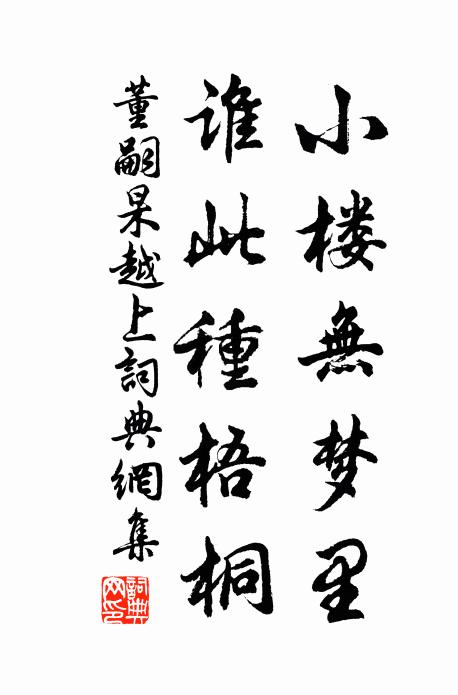 小楼無梦里
谁此種梧桐
董嗣杲越上詞典網集
詞典网印